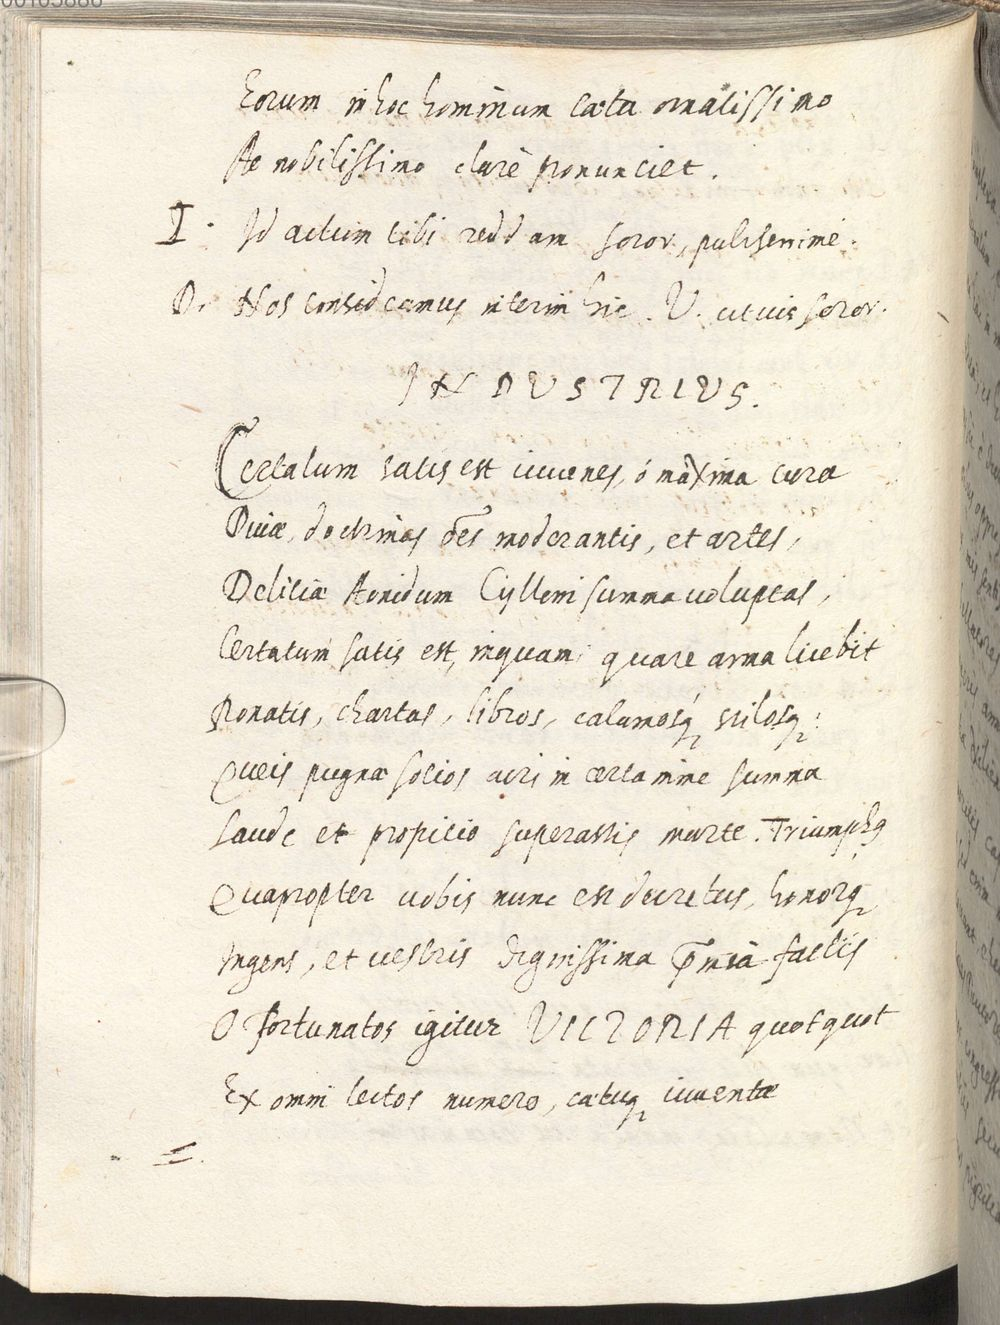 Eorum in hoc hominum cætu ornatissimo
Ac nobilissimo clarè pronunciet.
I. Id actum tibi reddam soror, pulcherrime.
D. Nos consideamus interim hic. V. ut vis soror.
INDUSTRIUS.
Certatum satis est iuvenes, ô maxima cura
Divæ, doctrinas oẽs moderantis, et artes,
Delitiæ Aonidum Cylleni summa voluptas,
Certatum satis est, inquam, quare arma licebit
Ponatis, chartas, libros, calamosq, stilosq;
Queis pugnæ socios acri in certamine summa
Laude et propitio superastis marte. Triumphq
Quapropter vobis nunc est decretus, honorq
Ingens, et vestris dignissima p̃mia factis
O fortunatos igitur VICTORIA quotquot
Ex omni lectos numero, cætuq iuventæ